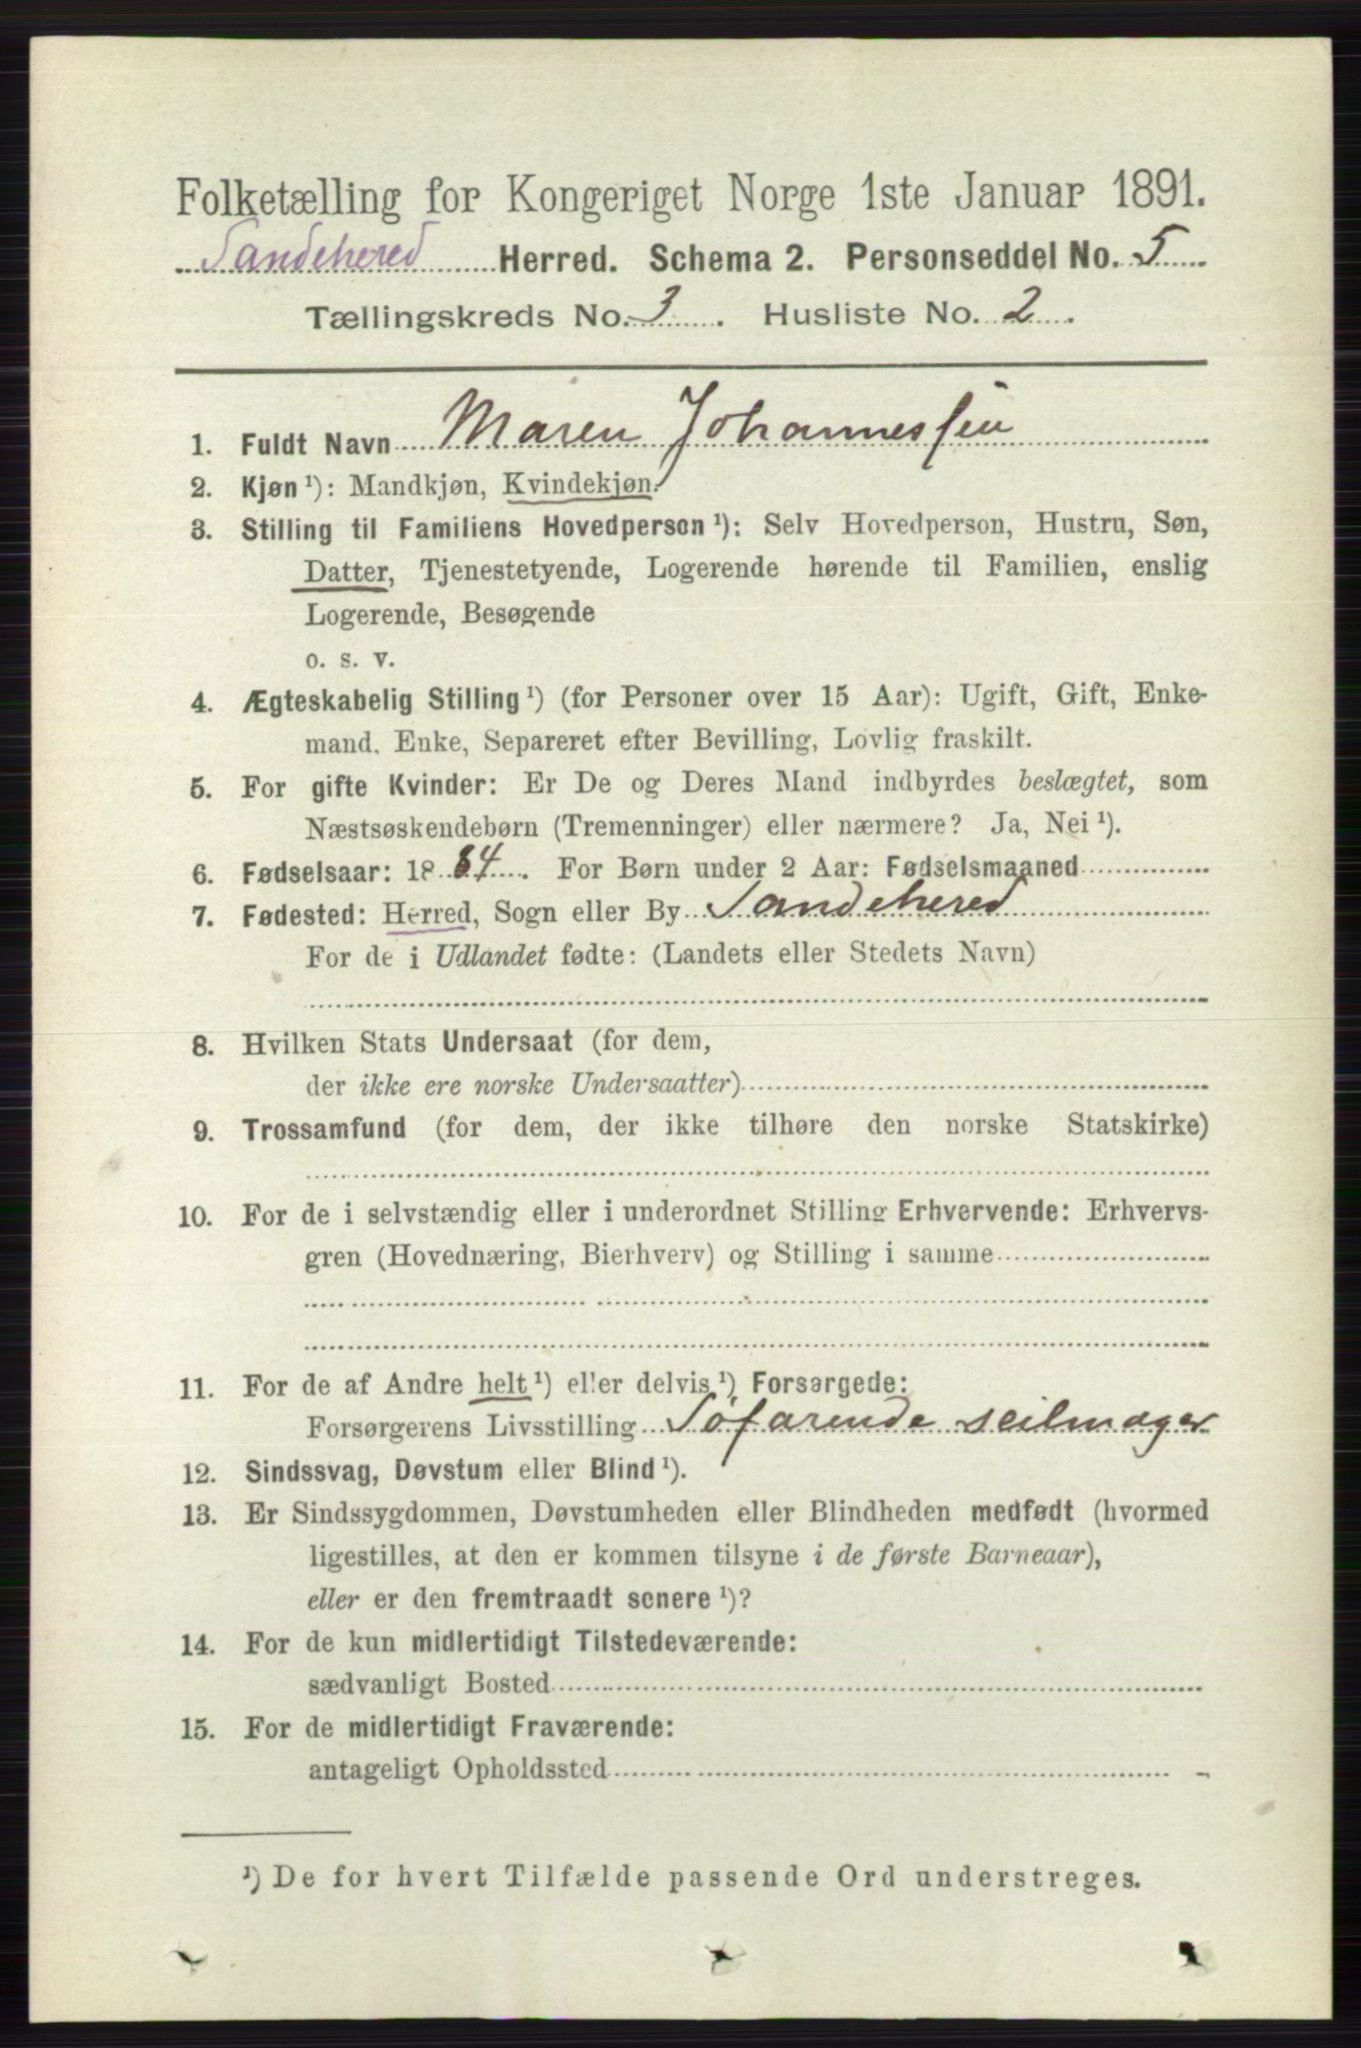 Folketælling for Kongeriget Norge 1ste Januar 1891.
Sandehered Herred. Schema 2. Personseddel No. 5
Tællingskreds No. 3. Husliste No. 2.
1. Fuldt Navn Maren Johannessen
2. Kjøn ¹): Mandkjøn, Kvindekjøn.
3. Stilling til Familiens Hovedperson ¹): Selv Hovedperson, Hustru, Søn,
Datter, Tjenestetyende, Logerende hørende til Familien, enslig
Logerende, Besøgende
o. s. v.
4. Ægteskabelig Stilling ¹) (for Personer over 15 Aar): Ugift, Gift, Enke-
mand, Enke, Separeret efter Bevilling, Lovlig fraskilt.
5. For gifte Kvinder: Er De og Deres Mand indbyrdes beslægtet, som
Næstsøskendebørn (Tremenninger) eller nærmere? Ja, Nei ¹).
6. Fødselsaar: 1884. For Børn under 2 Aar: Fødselsmaaned
7. Fødested: Herred, Sogn eller By Sandehered
For de i Udlandet fødte: (Landets eller Stedets Navn)
8. Hvilken Stats Undersaat (for dem,
der ikke ere norske Undersaatter)
9. Trossamfund (for dem, der ikke tilhøre den norske Statskirke)
10. For de i selvstændig eller i underordnet Stilling Erhvervende: Erhvervs-
gren (Hovednæring, Bierhverv) og Stilling i samme
11. For de af Andre helt ¹) eller delvis ¹) Forsørgede:
Forsørgerens Livsstilling Søfarende seilmager
12. Sindssvag, Døvstum eller Blind ¹).
13. Er Sindssygdommen, Døvstumheden eller Blindheden medfødt (hvormed
ligestilles, at den er kommen tilsyne i de første Barneaar),
eller er den fremtraadt senere ¹)?
14. For de kun midlertidigt Tilstedeværende:
sædvanligt Bosted
15. For de midlertidigt Fraværende:
antageligt Opholdssted
¹) De for hvert Tilfælde passende Ord understreges.